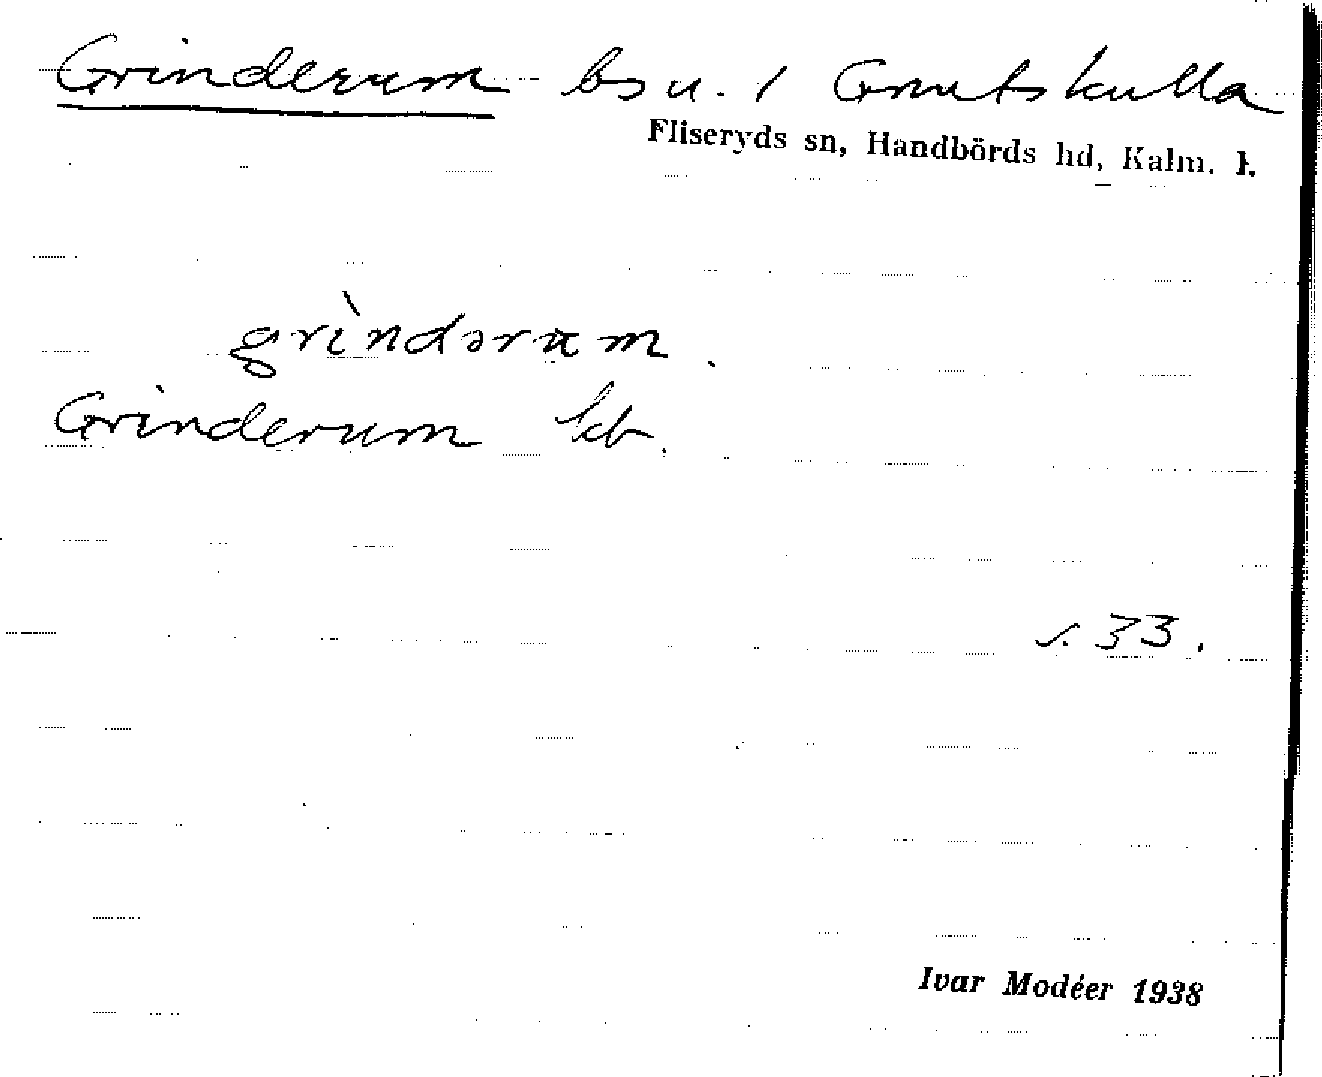 Grinderum bs u. 1 Grutskulla
Fliseryds sn, Handbörds hd, Kalm. l.
grìndərum.
Grinderum kb.
s. 33.
Ivar Modéer 1938